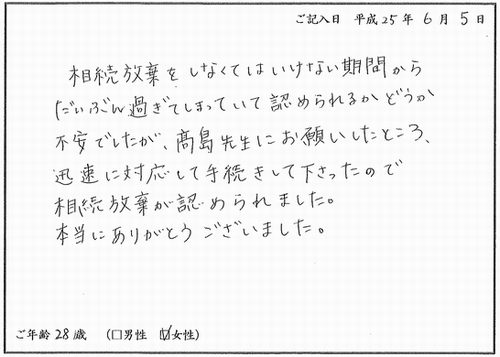 ご記入日 平成25年 6月 5日
相続放棄をしなくてはいけない期間から
だいぶん過ぎてしまっていて認められるかどうか
不安でしたが、髙島先生にお願いしたところ、
迅速に対応して手続きして下さったので
相続放棄が認められました。
本当にありがとうございました。
ご年齢28歳 (□男性 ☑女性)